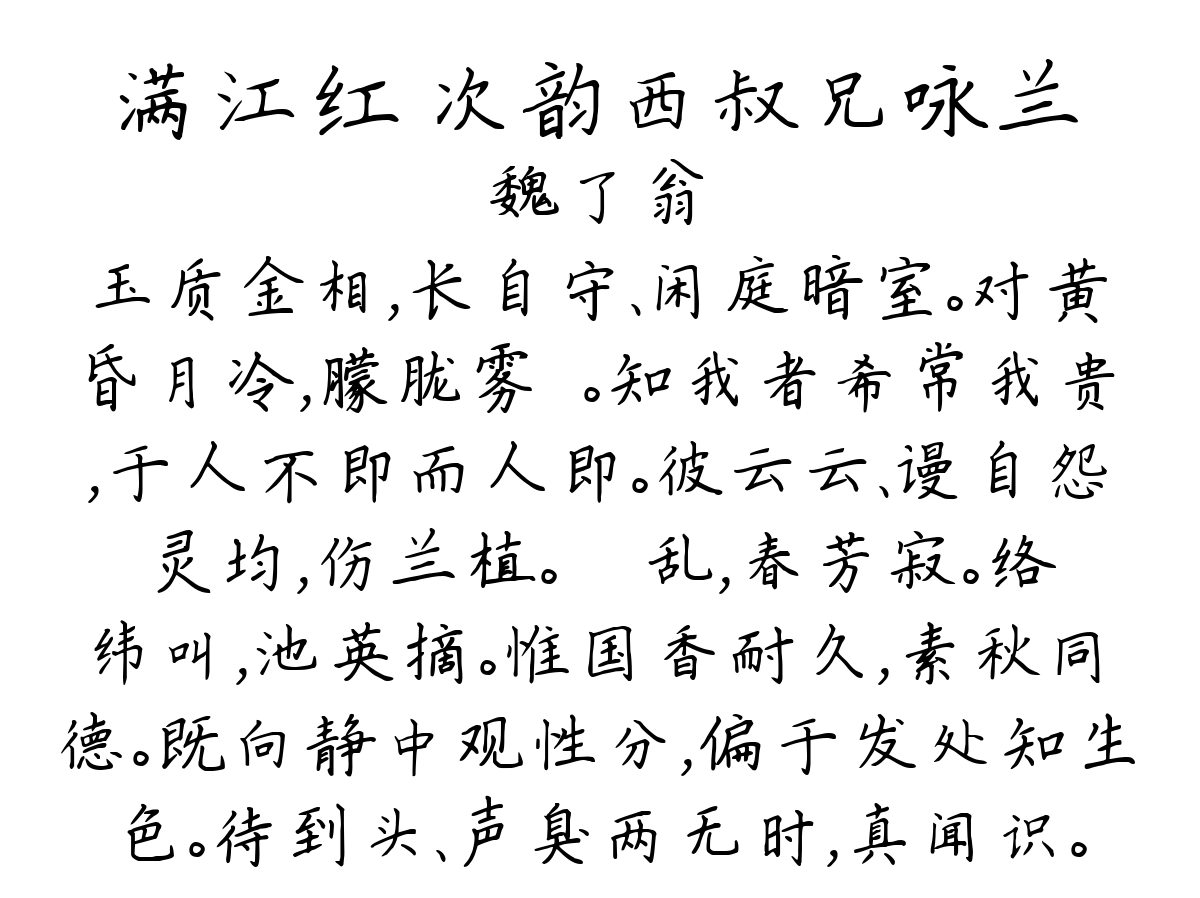 满江红 次韵西叔兄咏兰
魏了翁
玉质金相,长自守、闲庭暗室。对黄
昏月冷,朦胧雾 。知我者希常我贵
,于人不即而人即。彼云云、谩自怨
灵均,伤兰植。 乱,春芳寂。络
纬叫,池英摘。惟国香耐久,素秋同
德。既向静中观性分,偏于发处知生
色。待到头、声臭两无时,真闻识。